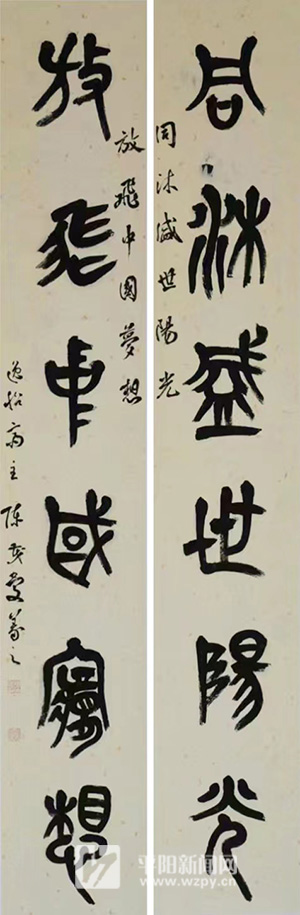 同沐盛世陽光
同沐盛世陽光
放飛中國夢想
放飛中國夢想
齋主陳篆之
平阳新闻网
www.wzpy.cn